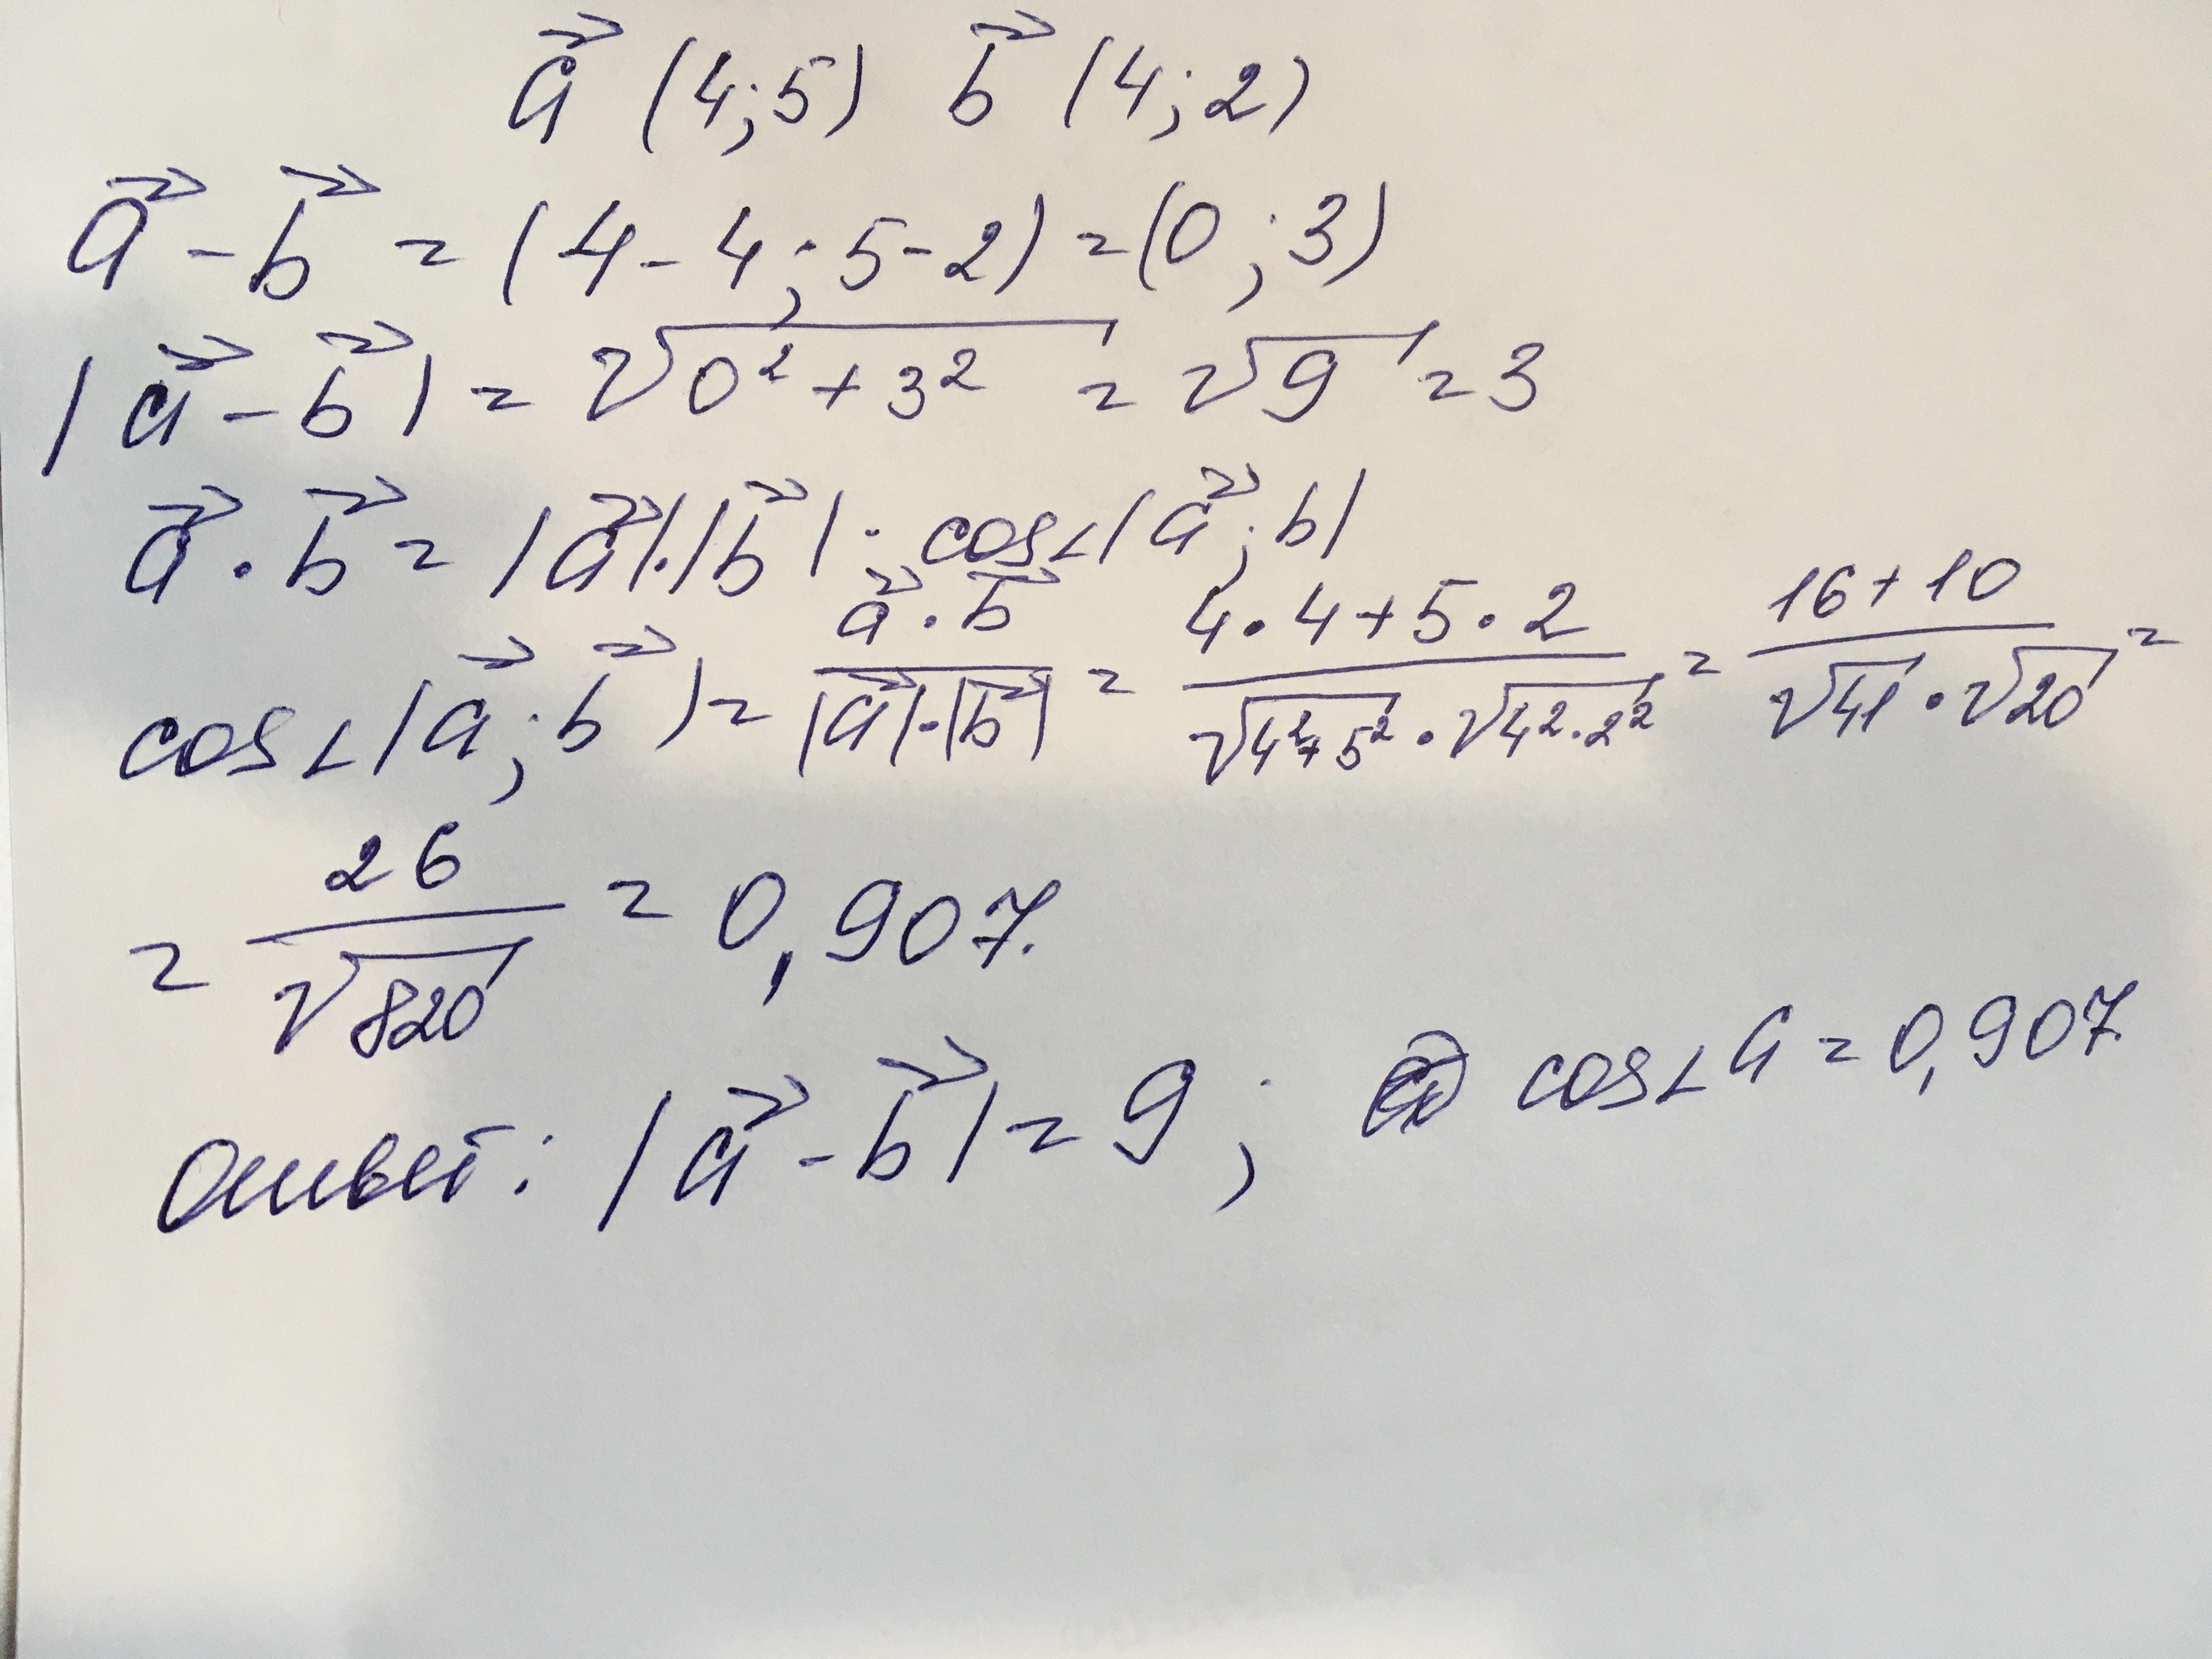 a⃗ (4;5) b⃗ (4;2)
a⃗ - b⃗ = (4-4; 5-2) = (0; 3)
|a⃗ - b⃗| = √(0² + 3²) = √9 = 3
a⃗ · b⃗ = |a⃗|·|b⃗| · cos∠(a⃗; b)
cos∠(a⃗; b⃗) = (a⃗ · b⃗)/(|a⃗|·|b⃗|) = (4·4+5·2)/(√(4²+5²) · √(4²·2²)) = (16+10)/(√41 · √20) =
= 26/√820 = 0,907.
Ответ: |a⃗ - b⃗| = 9; cos∠a = 0,907.